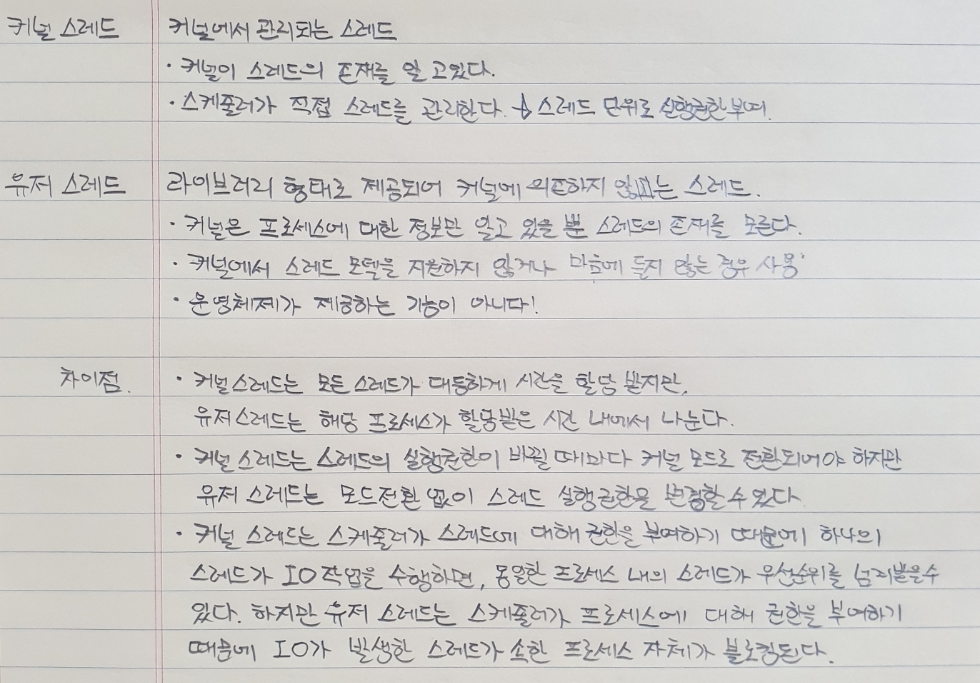 커널 스레드 커널에서 관리되는 스레드
· 커널이 스레드의 존재를 알고있다.
· 스케줄러가 직접 스레드를 관리한다. 스레드 단위로 실행권한 부여.
유저 스레드 라이브러리 형태로 제공되어 커널에 의존하지 않는 스레드.
· 커널은 프로세스에 대한 정보만 알고 있을 뿐 스레드의 존재를 모른다.
· 커널에서 스레드 모델을 지원하지 않거나 마음에 들지 않는 경우 사용
· 운영체제가 제공하는 기능이 아니다!
차이점. · 커널스레드는 모든 스레드가 대등하게 시간을 할당 받지만,
유저스레드는 해당 프로세스가 할당받은 시간 내에서 나눈다.
· 커널 스레드는 스레드의 실행권한이 바뀔 때마다 커널 모드로 전환되어야 하지만
유저 스레드는 모드전환 없이 스레드 실행권한을 변경할 수 있다.
· 커널 스레드는 스케줄러가 스레드에 대해 권한을 부여하기 때문에 하나의
스레드가 IO작업을 수행하면, 동일한 프로세스 내의 스레드가 우선순위를 넘겨받을수
있다. 하지만 유저 스레드는 스케줄러가 프로세스에 대해 권한을 부여하기
때문에 IO가 발생한 스레드가 속한 프로세스 자체가 블로킹된다.